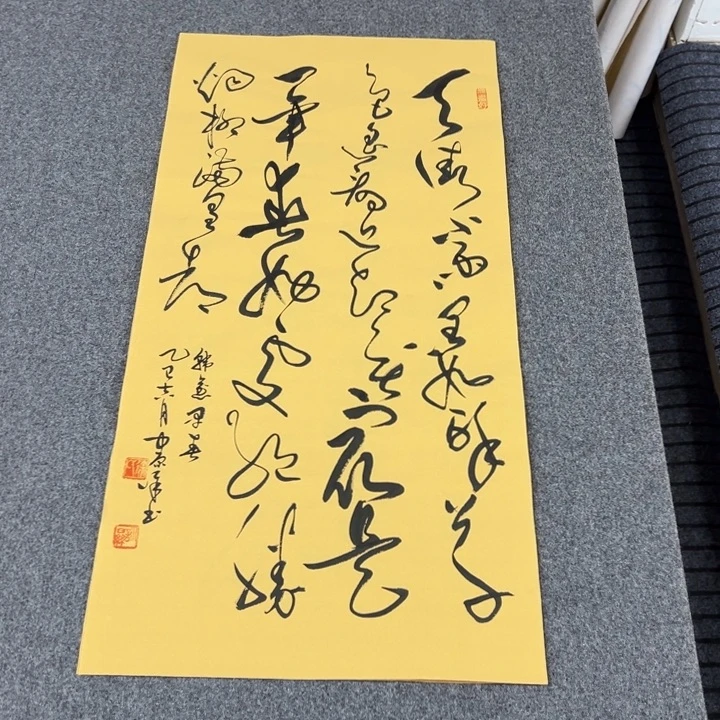 天街小雨润如酥草
色遥看近却无最是
一年春好处绝胜
烟柳满皇都
韩愈早春
乙巳六月中原书